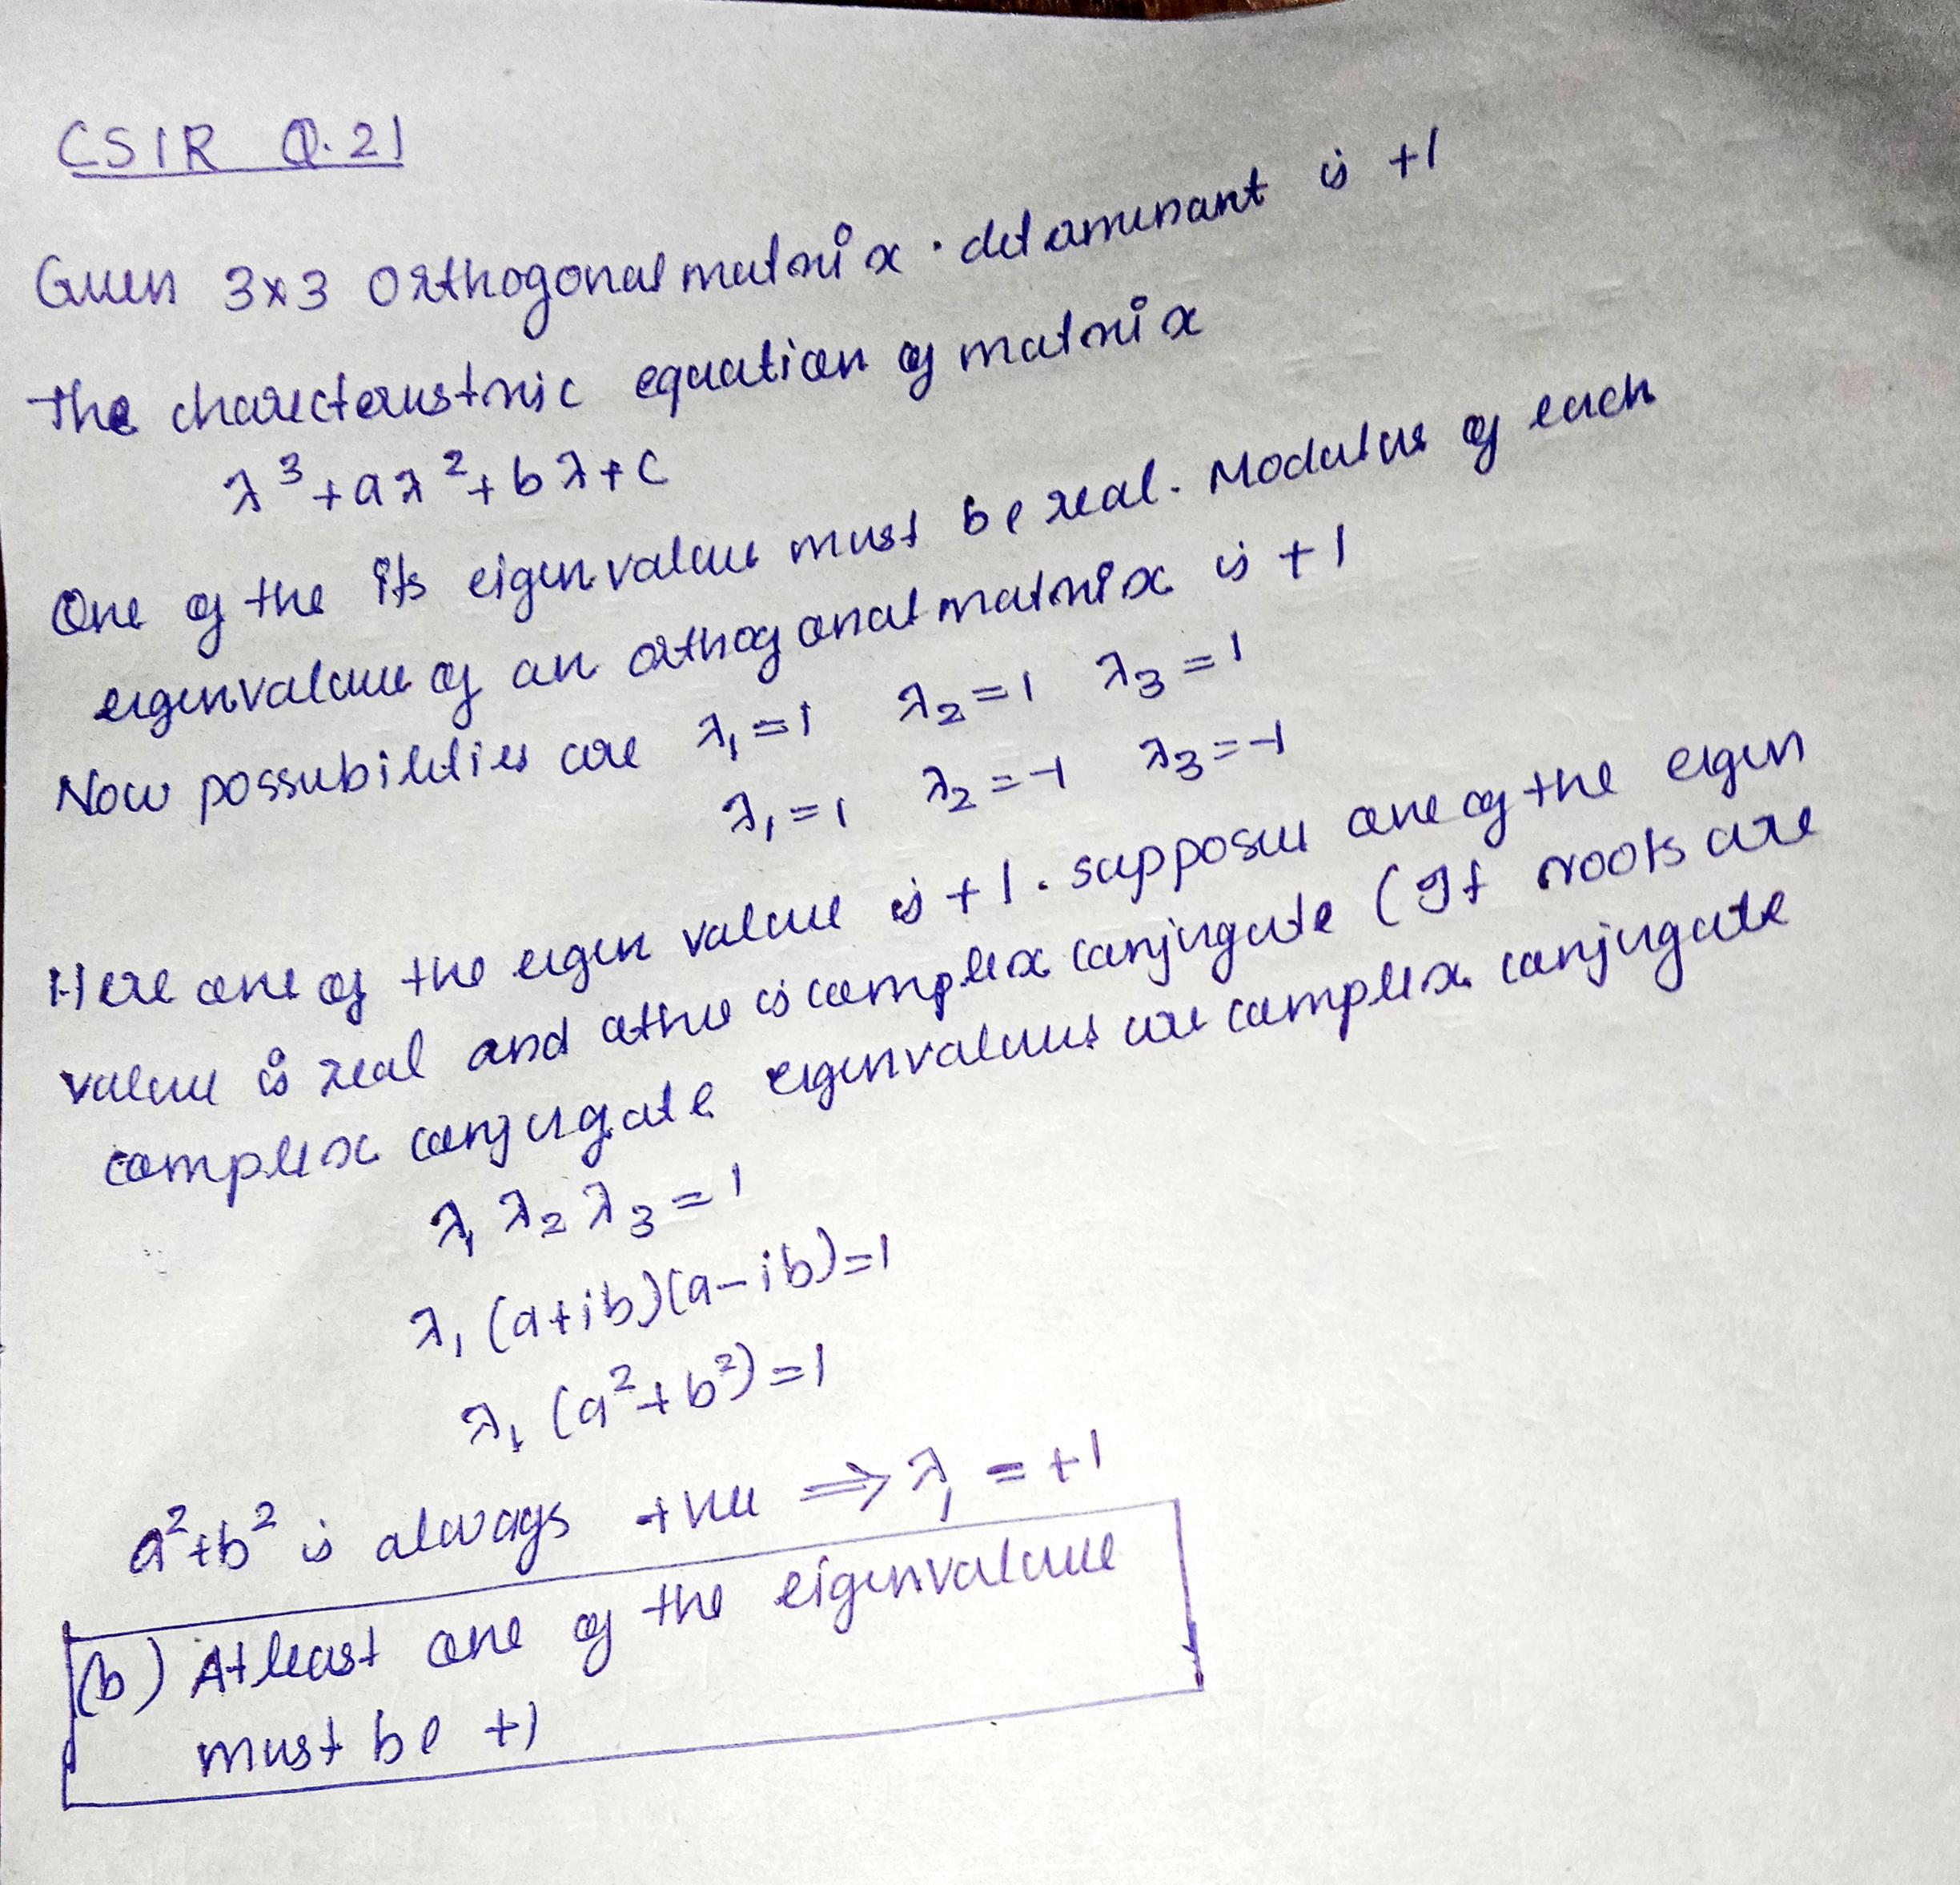 CSIR Q.21
Given 3x3 orthogonal matrix . detaminant is +1
The charecterustric equation of matrix
λ³+aλ²+bλ+c
One of the its eigenvalue must be real. Modulus of each
eigenvalue of an orthogonal matrix is +1
Now possubilities are λ₁=1 λ₂=1 λ₃=1
λ₁=1 λ₂=-1 λ₃=-1
Here one of the eigen value is +1. suppose one of the eigen
value is real and other is complex conjugate (If roots are
complex conjugate eigenvalues are complex conjugate
λ₁ λ₂ λ₃=1
λ₁ (a+ib)(a-ib)=1
λ₁ (a²+b²)=1
a²+b² is always +ve ⇒ λ₁ = +1
(b) Atleast one of the eigenvalue
must be +1